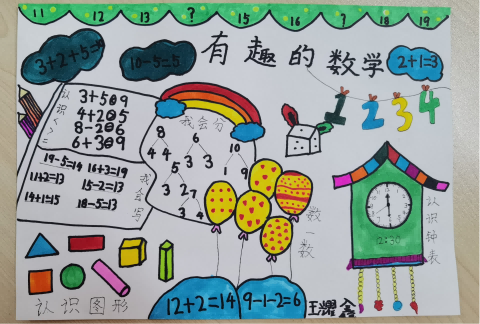 11 12 13 ? 15 16 ? 18 19
有趣的数学
3+2+5=
10-5=5
2+1=3
1 2 3 4
认识<>=
3+5 9
4+2 5
8-2 6
6+3 9
19-5=14 16+3=19
11+2=13 15-2=13
14+1=15 18-5=13
我会写
我会分
8
4 4
6
3 3
10
1 9
5
3 2
7
3 4
数一数
认识钟表
2:30
认识图形
12+2=14
9-1-2=6